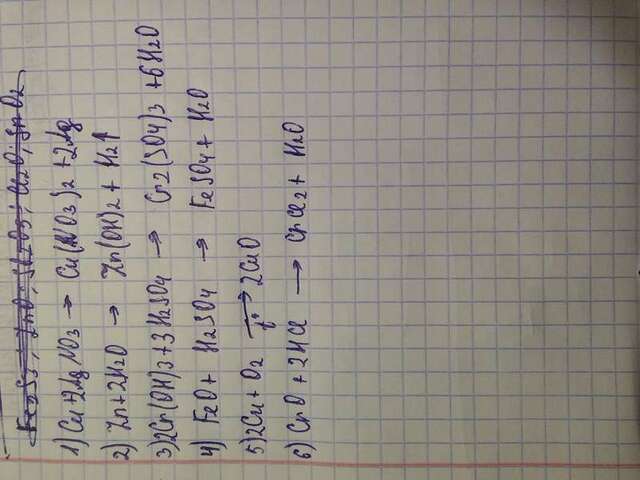 1) Cu+2AgNO3 → Cu(NO3)2 +2Ag
2) Zn+2H2O → Zn(OH)2 + H2↑
3)2Cr(OH)3+3H2SO4 → Cr2(SO4)3 +6H2O
4) FeO+ H2SO4 → FeSO4+ H2O
5)2Cu+O2 t° → 2CuO
6) CrO +2HCl → CrCl2 + H2O